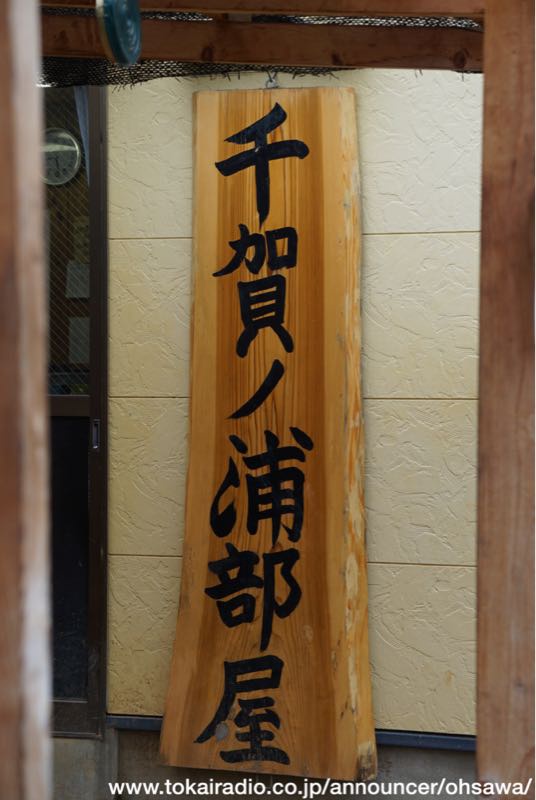 千賀ノ浦部屋
www.tokairadio.co.jp/announcer/ohsawa/